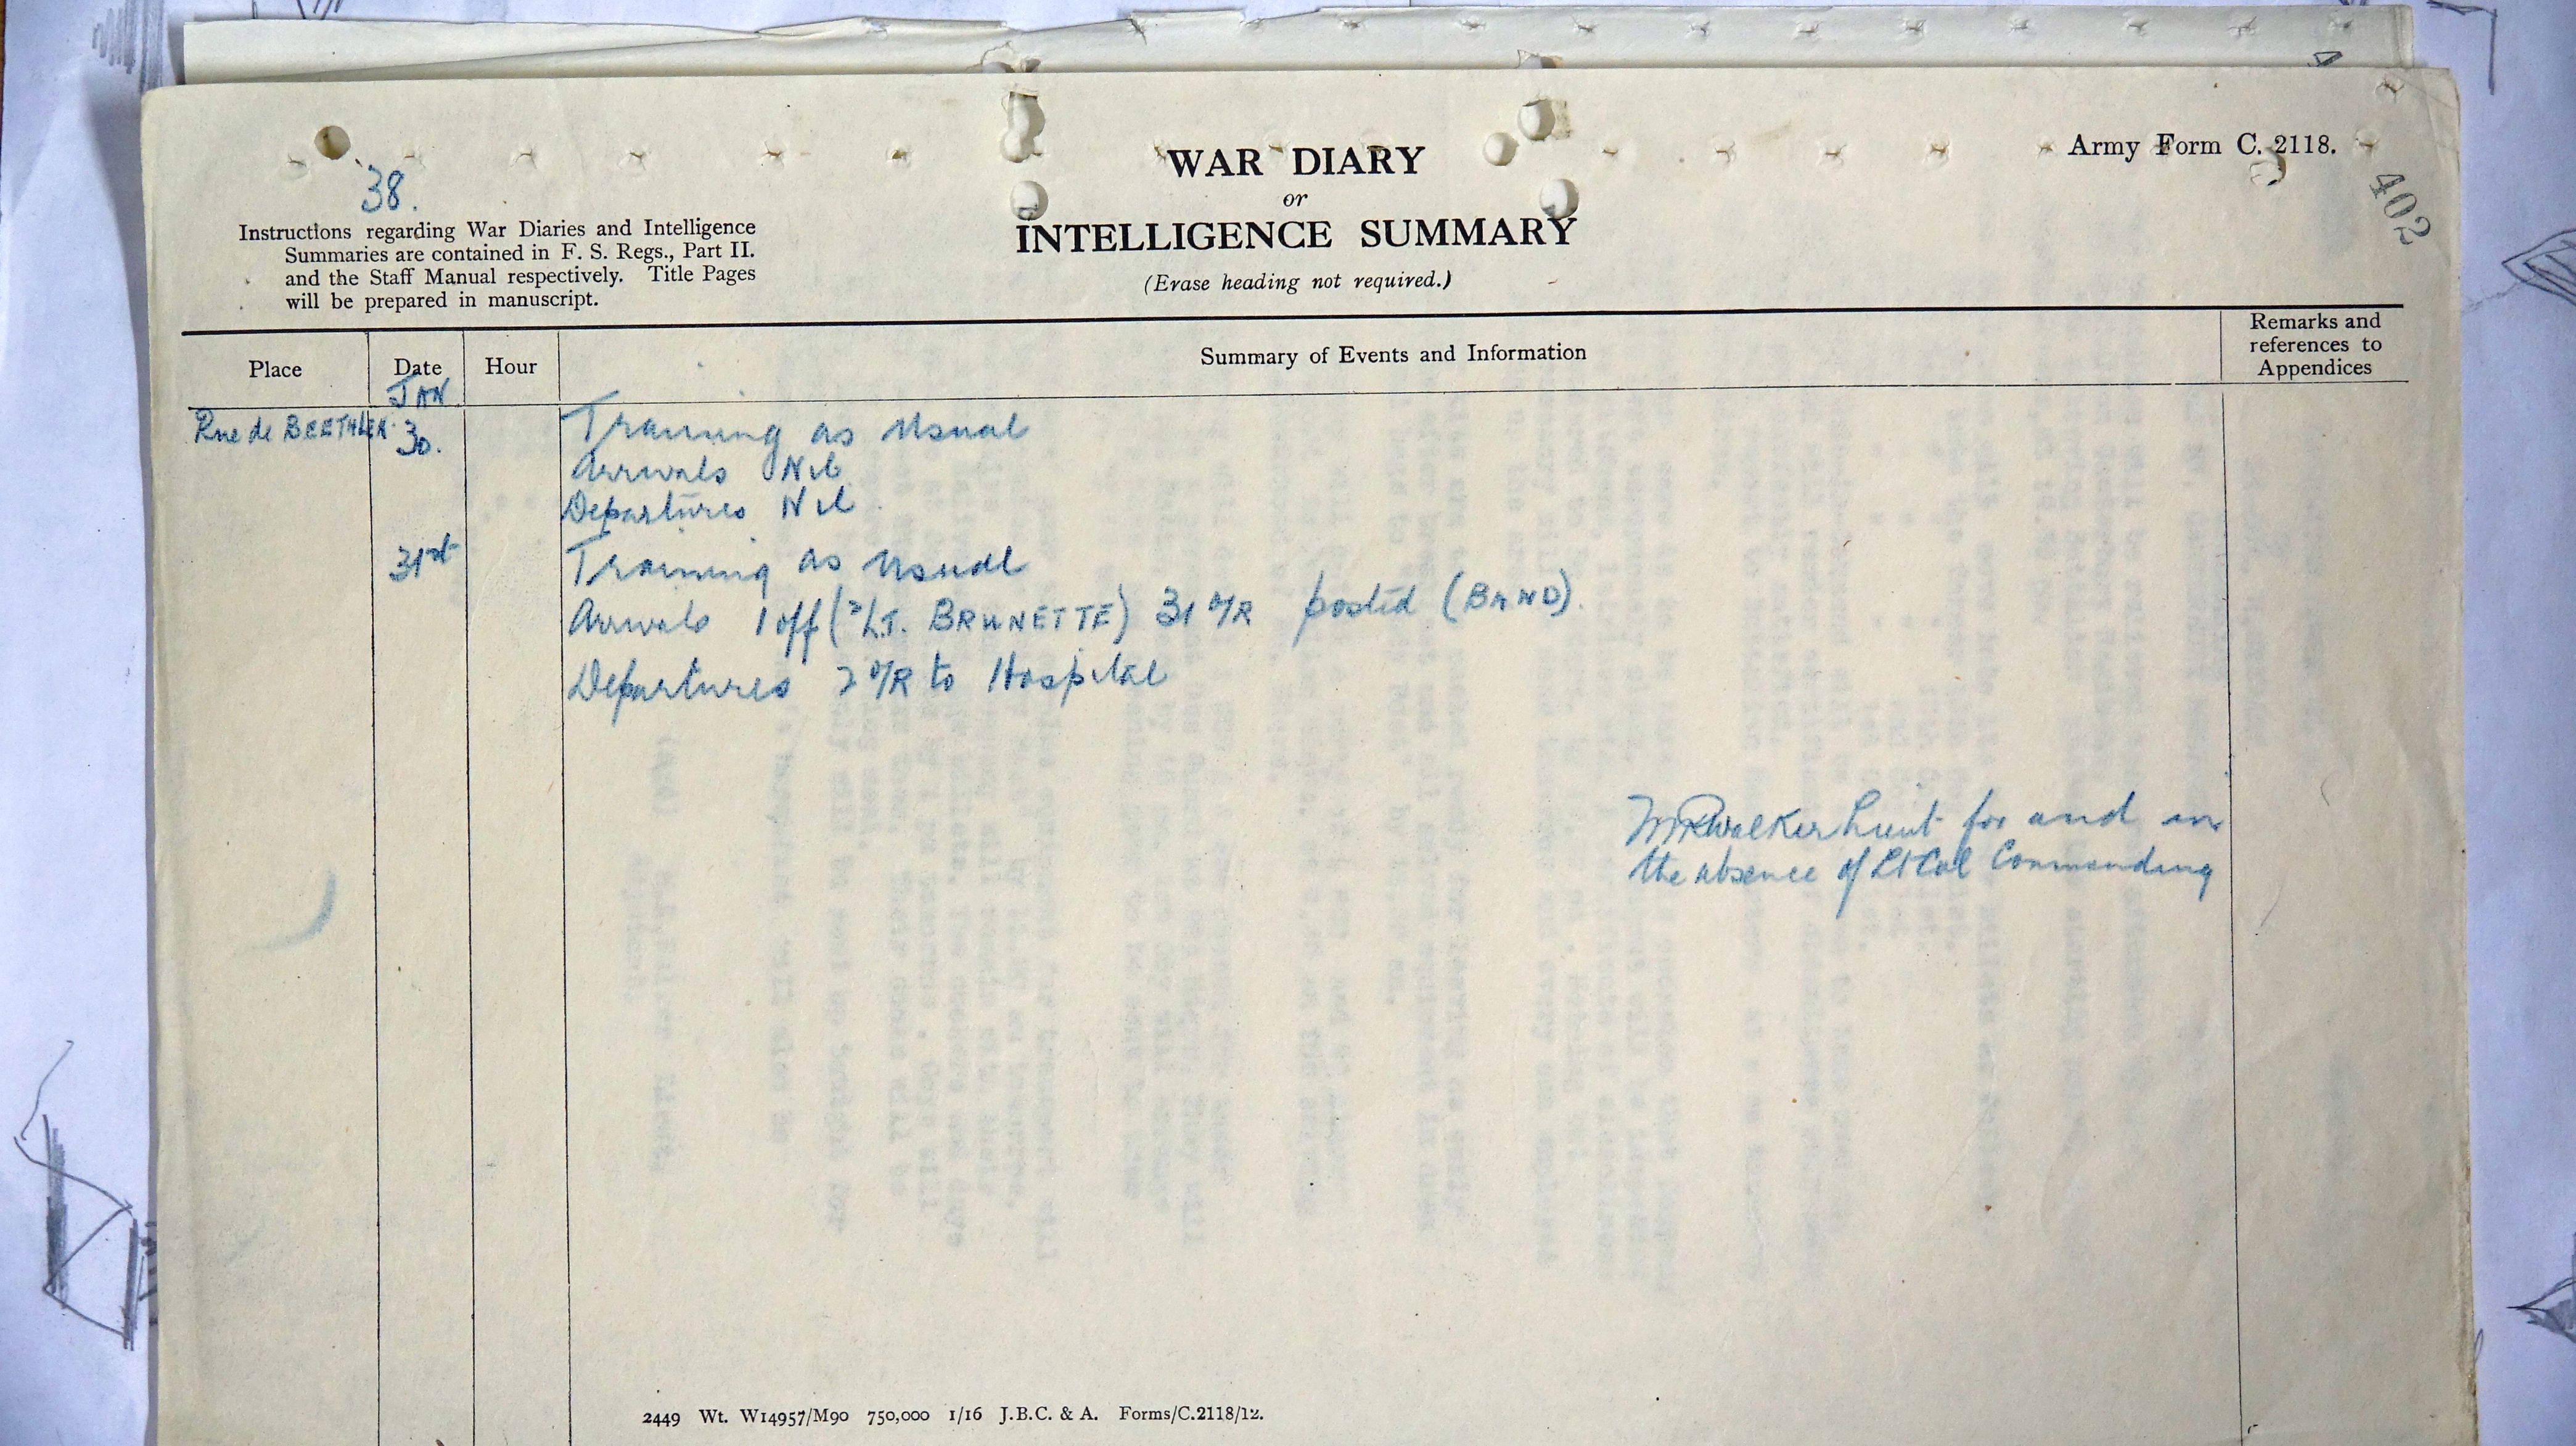 Army Form C. 2118.
402
38.
WAR DIARY
or
INTELLIGENCE SUMMARY
(Erase heading not required.)
Instructions regarding War Diaries and Intelligence
Summaries are contained in F. S. Regs., Part II.
and the Staff Manual respectively. Title Pages
will be prepared in manuscript.
Place Date Hour Summary of Events and Information Remarks and references to Appendices
JAN
Rue de 30. Training as usual
Arrivals Nil
Departures Nil
31st Training as usual
Arrivals 1 off (2/Lt. BRUNETTE) 31 O/R posted (BAND).
Departures 2 O/R to Hospital
Walker Lieut for and in
the absence of Lt Col Commanding
2449 Wt. W14957/M90 750,000 1/16 J.B.C. & A. Forms/C.2118/12.